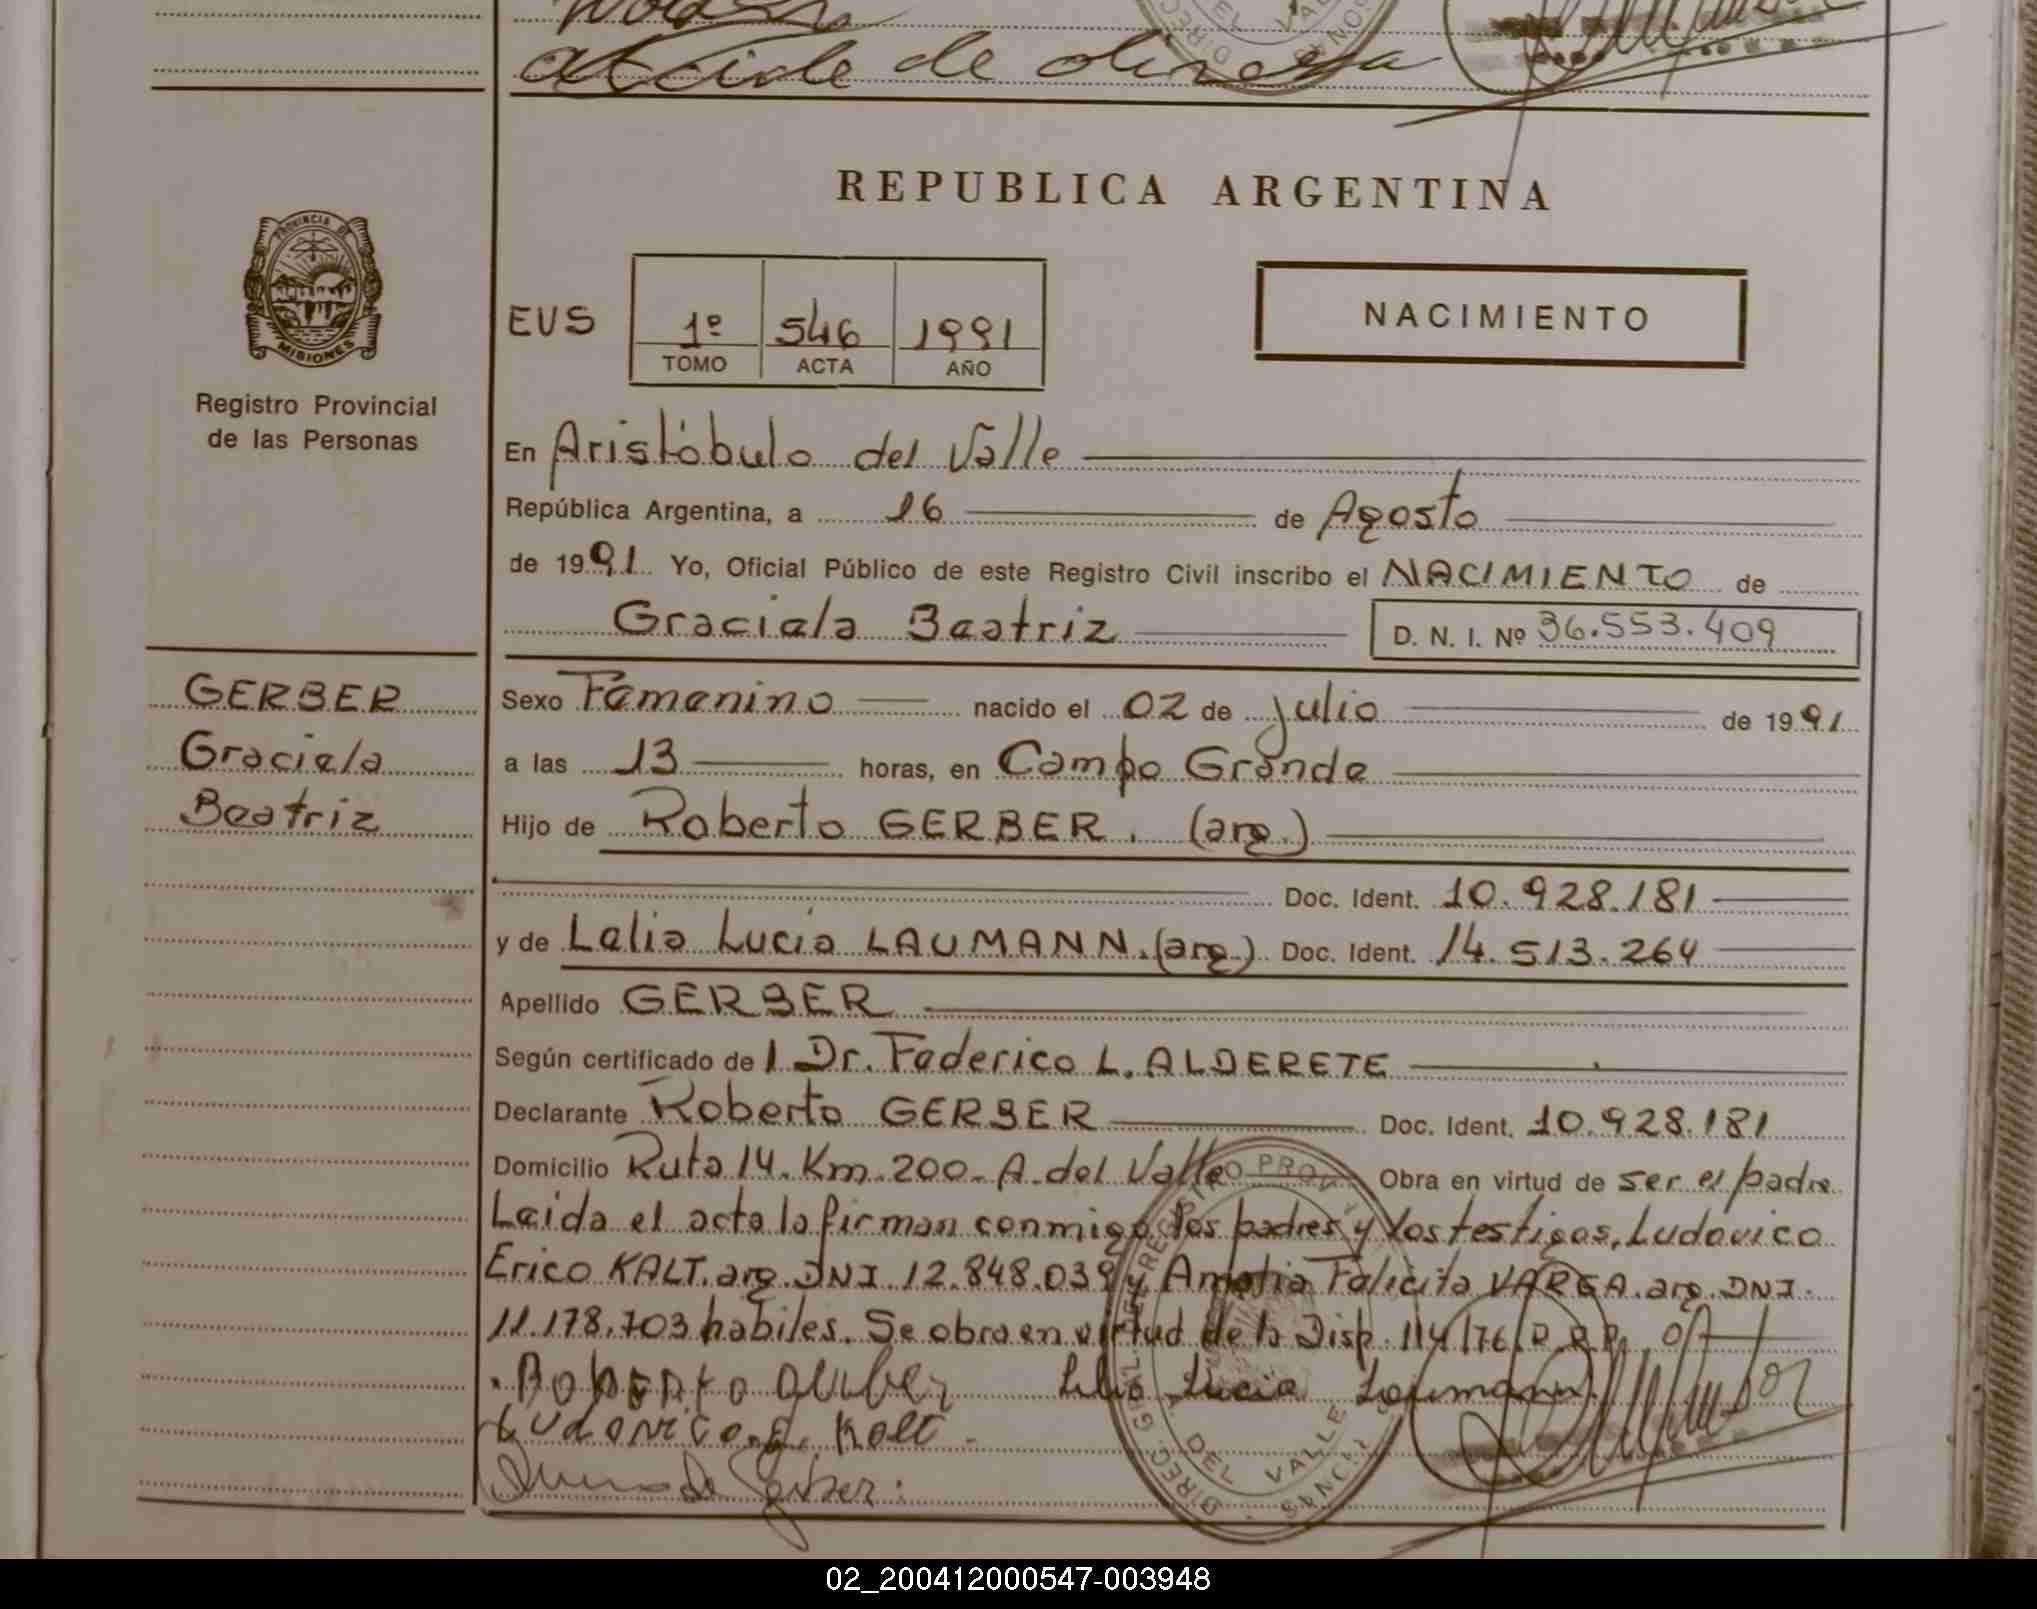 alcide de olivera
REPUBLICA ARGENTINA
PROVINCIA DE
MISIONES
Registro Provincial
de las Personas
EUS
1º 546 1991
TOMO ACTA AÑO
NACIMIENTO
En Aristóbulo del Valle
República Argentina, a 16 de Agosto
de 1991 Yo, Oficial Público de este Registro Civil inscribo el NACIMIENTO de
Graciela Beatriz D. N. I. Nº 36.553.409
GERBER
Graciela
Beatriz
Sexo Femenino nacido el 02 de julio de 1991
a las 13 horas, en Campo Grande
Hijo de Roberto GERBER. (arg.)
Doc. Ident. 10.928.181
y de Lelia Lucia LAUMANN. (arg.) Doc. Ident. 14.513.264
Apellido GERBER
Según certificado de l Dr. Federico L. ALDERETE
Declarante Roberto GERBER Doc. Ident. 10.928.181
Domicilio Ruta 14. Km. 200. A. del Valle Obra en virtud de ser el padre
Leida el acta la firman conmigo los padres y los testigos, Ludovico
Erico KALT. arg. DNI 12.848.039 y Amalia Felicita VARGA. arg. DNI.
11.178.703 habiles. Se obra en virtud de la Disp. 114/76
Roberto Gerber Lelia Lucia Laumann
Ludovico E. Kalt
DEL VALLE
02_200412000547-003948